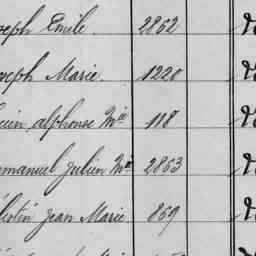 oseph Emile. 2862
oseph Marie. 1220
ucien, alphonse Mie 118
mmanuel Julien Me 2863
élestin Jean Marie 869